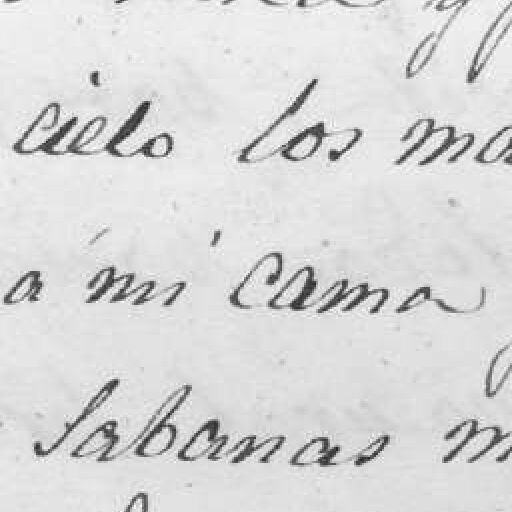 cielo los ma
a mi cama
Sabanas m